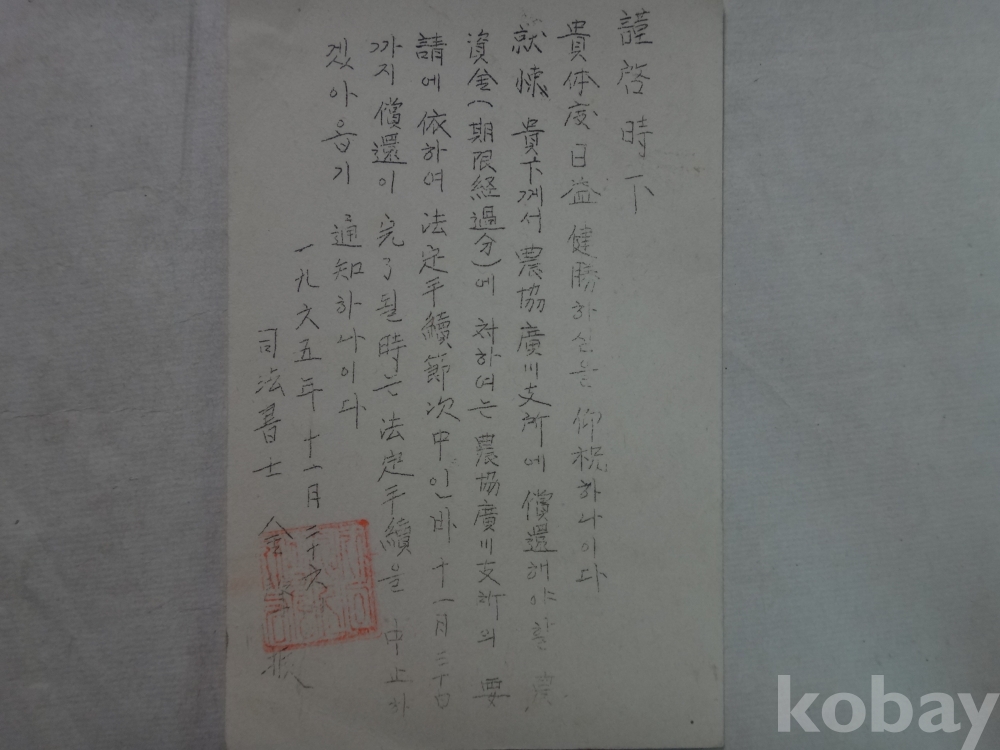 謹啓時下
貴体度日益健勝하심을 仰祝하나이다
就悚 貴下께서 農協廣川支所에 償還해야할 農
資金(期限経過分)에 対하여는 農協廣川支所의 要
請에 依하여 法定手續節次中인바 十一月三十日
까지 償還이 完了될時는 法定手續을 中止하
겠아옵기 通知하나이다
一九六五年十一月二十六
司法書士 金
kobay